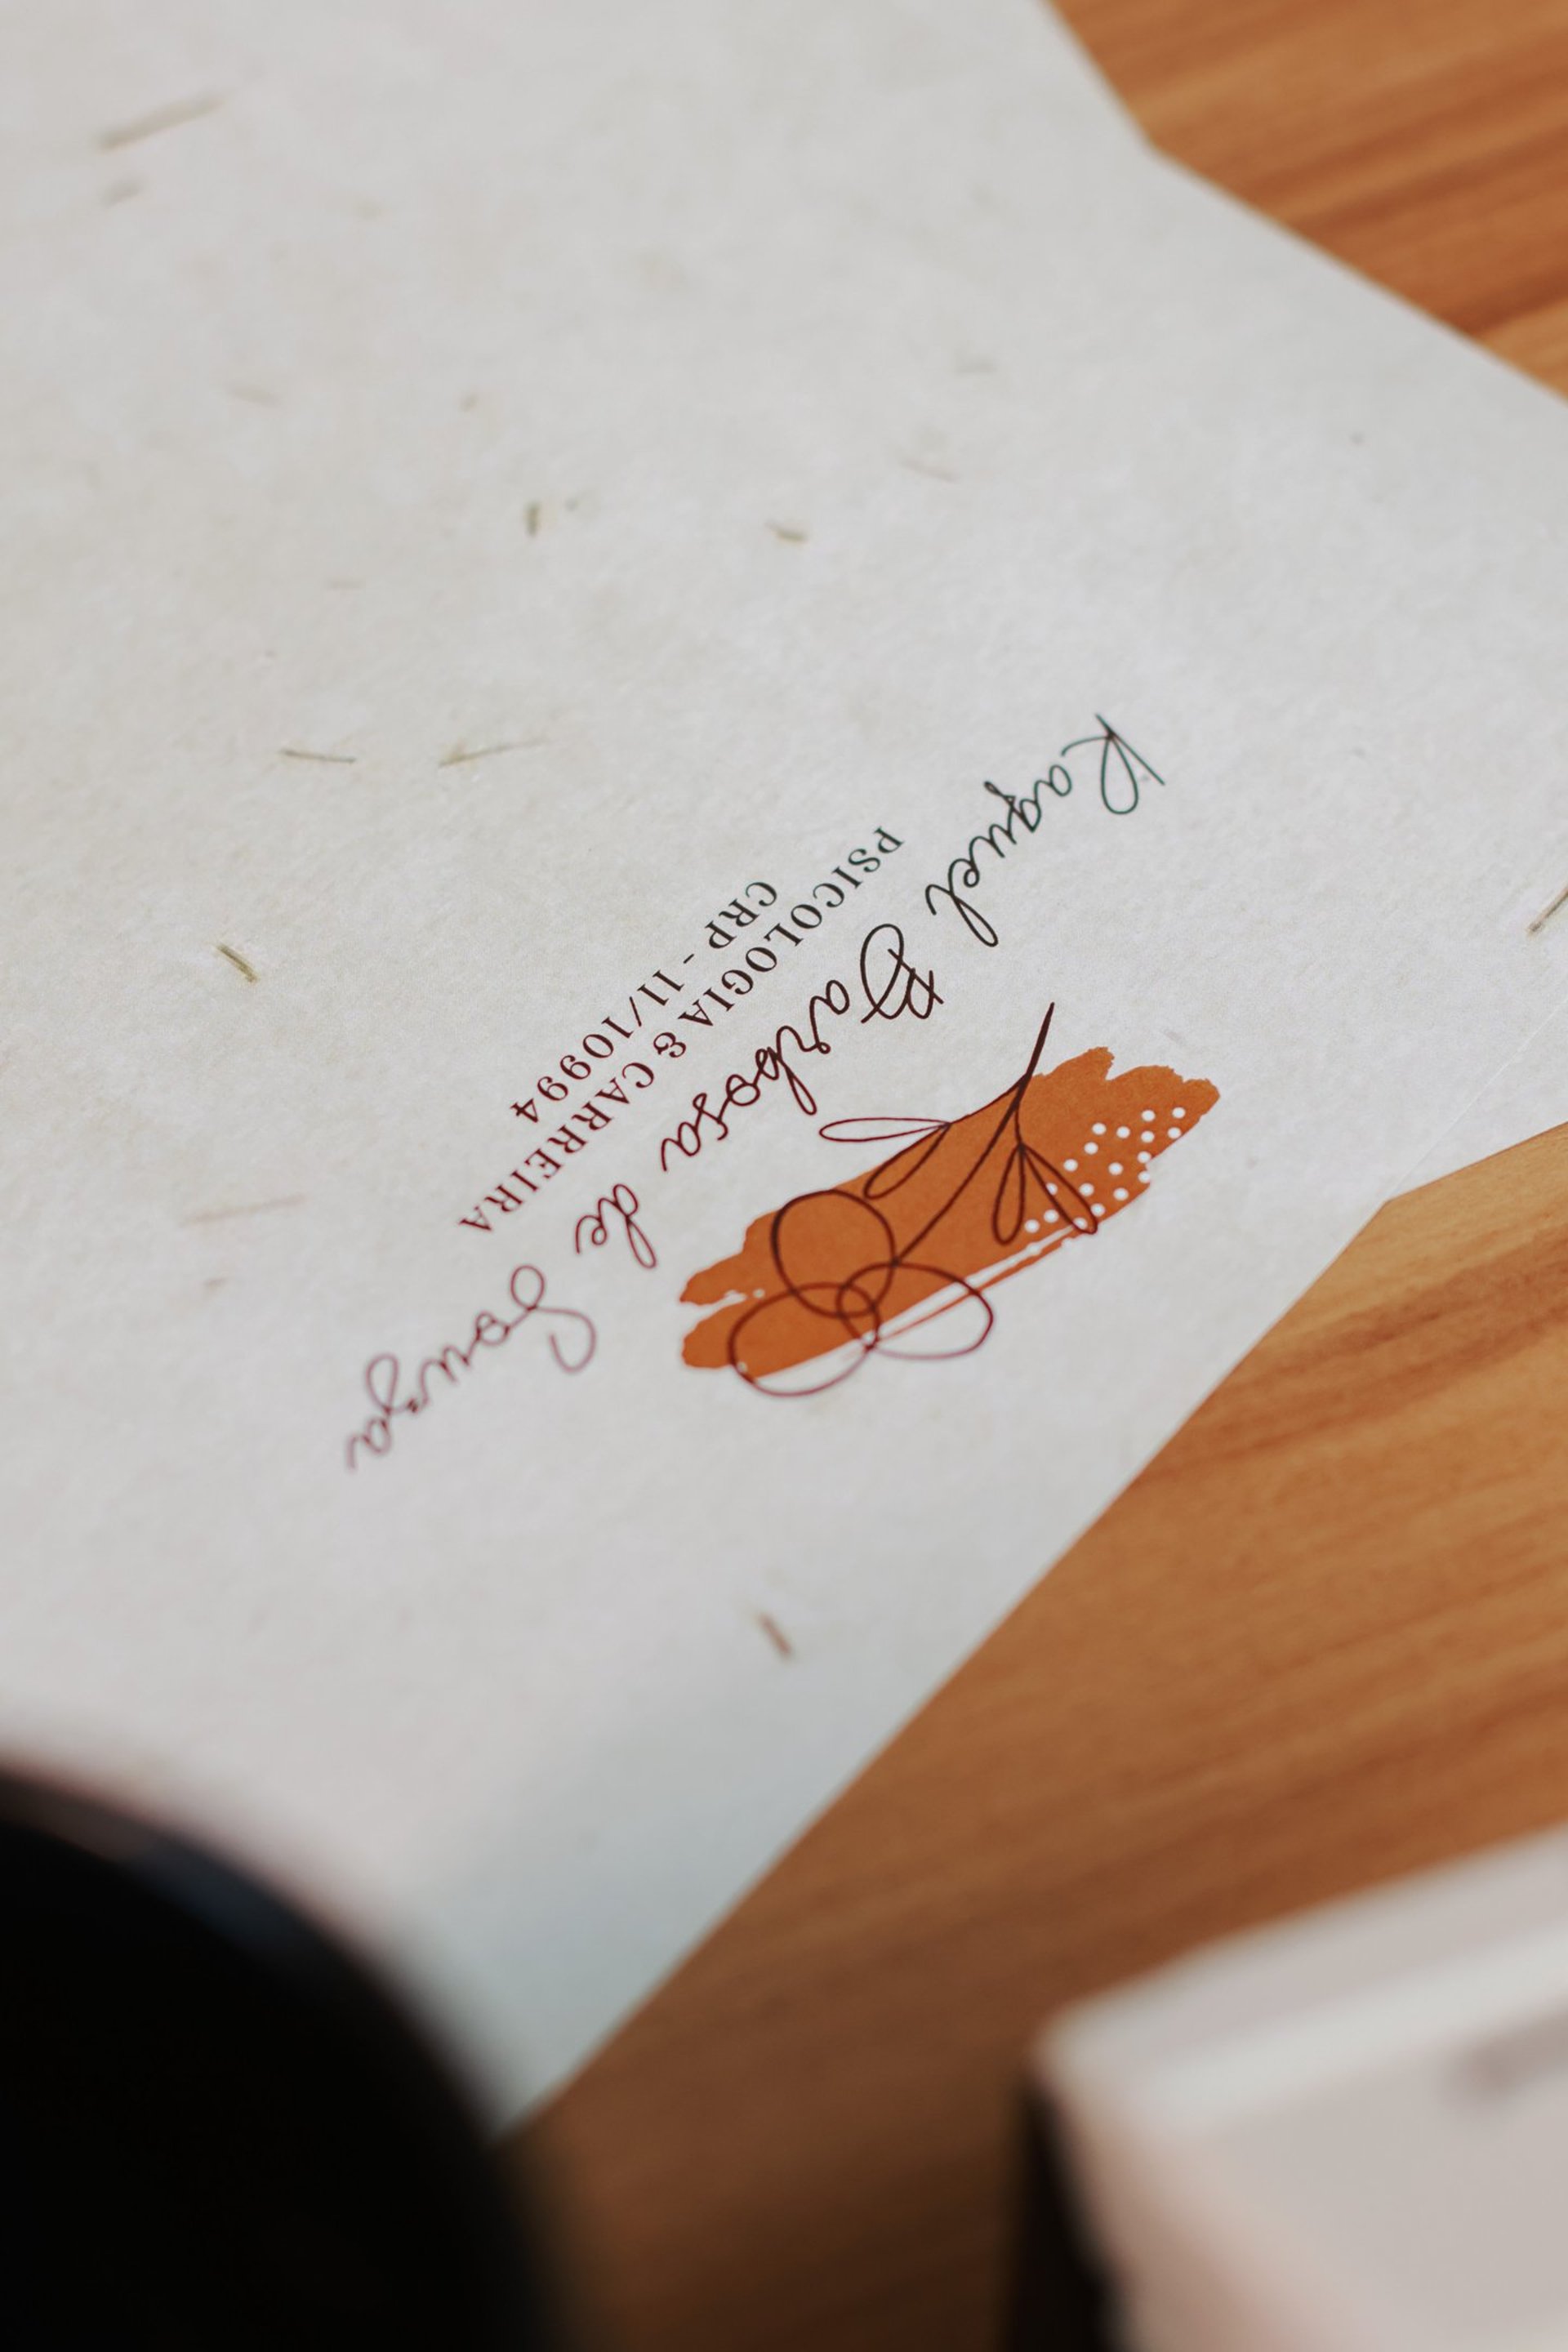 Raquel Barbosa de Souza
PSICOLOGIA & CARREIRA
CRP - 11/10994